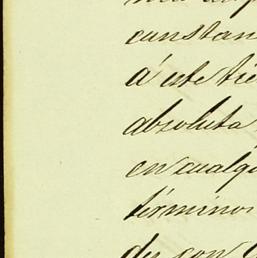 cunstan
á este tie
absoluta
en cualqu
términos